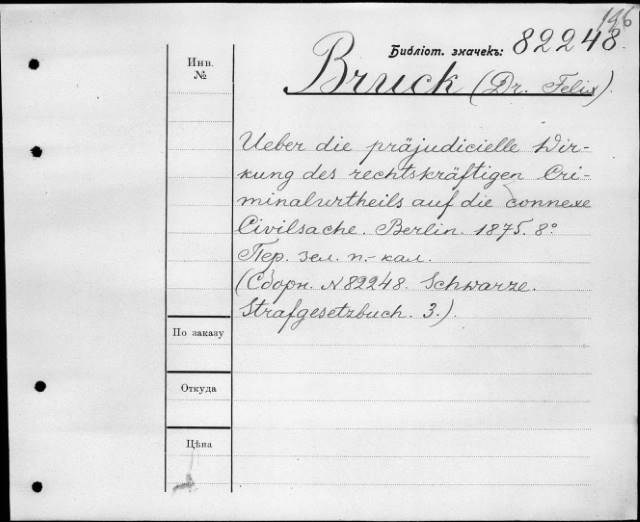 196
Библіот. значекъ: 82248.
Инв.
№
Bruck (Dr. Felix).
Ueber die präjudicielle Wir-
kung des rechtskräftigen Cri-
minalurtheils auf die connexe
Civilsache. Berlin. 1875. 8°
Пер. зел. п.-кал.
(Сборн. N 82248. Schwarze.
Strafgesetzbuch. 3.).
По заказу
Откуда
Цѣна